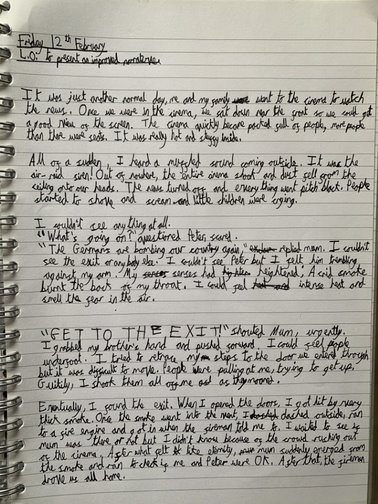 Friday 12th February
L.O: to present an improved narrative
It was just another normal day, me and my family went to the cinema to watch
the news. Once we were in the cinema, we sat down near the front so we could get
a good view of the screen. The cinema quickly became packed full of people, more people
than there were seats. It was really hot and stuffy inside.
All of a sudden, I heard a muffled sound coming outside. It was the
air-raid siren! Out of nowhere, the entire cinema shook and dust fell from the
ceiling onto our heads. The news turned off and everything went pitch black. People
started to shove and scream and little children were crying.
I couldn't see anything at all.
"What's going on?" questioned Peter, scared.
"The Germans are bombing our country again," replied mum. I couldn't
see the exit or anybody else. I couldn't see Peter but I felt him trembling
against my arm. My senses had heightened. Acid smoke
burnt the back of my throat. I could feel intense heat and
smell the fear in the air.
"GET TO THE EXIT!" shouted Mum, urgently.
I grabbed my brother's hand and pushed forward. I could feel people
underfoot. I tried to retrace my steps to the door we entered through
but it was difficult to move. People were pulling at me, trying to get up.
Guiltily, I shook them all off me and
Eventually, I found the exit. When I opened the doors, I got hit by heavy
thick smoke. Once the smoke went into the night, I dashed outside, ran
to a fire engine and got in when the fireman told me to. I waited to see if
mum was there or not but I didn't know because of the crowd rushing out
of the cinema. After what felt like eternity, mum suddenly emerged from
the smoke and ran to check if me and Peter were OK. After that, the fireman
drove us all home.